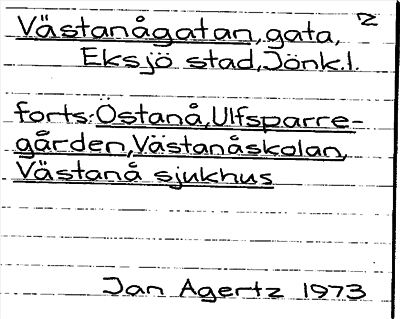 2
Västanågatan, gata,
Eksjö stad, Jönk.l.
forts: Östanå, Ulfsparre-
gården, Västanåskolan,
Västanå sjukhus
Jan Agertz 1973